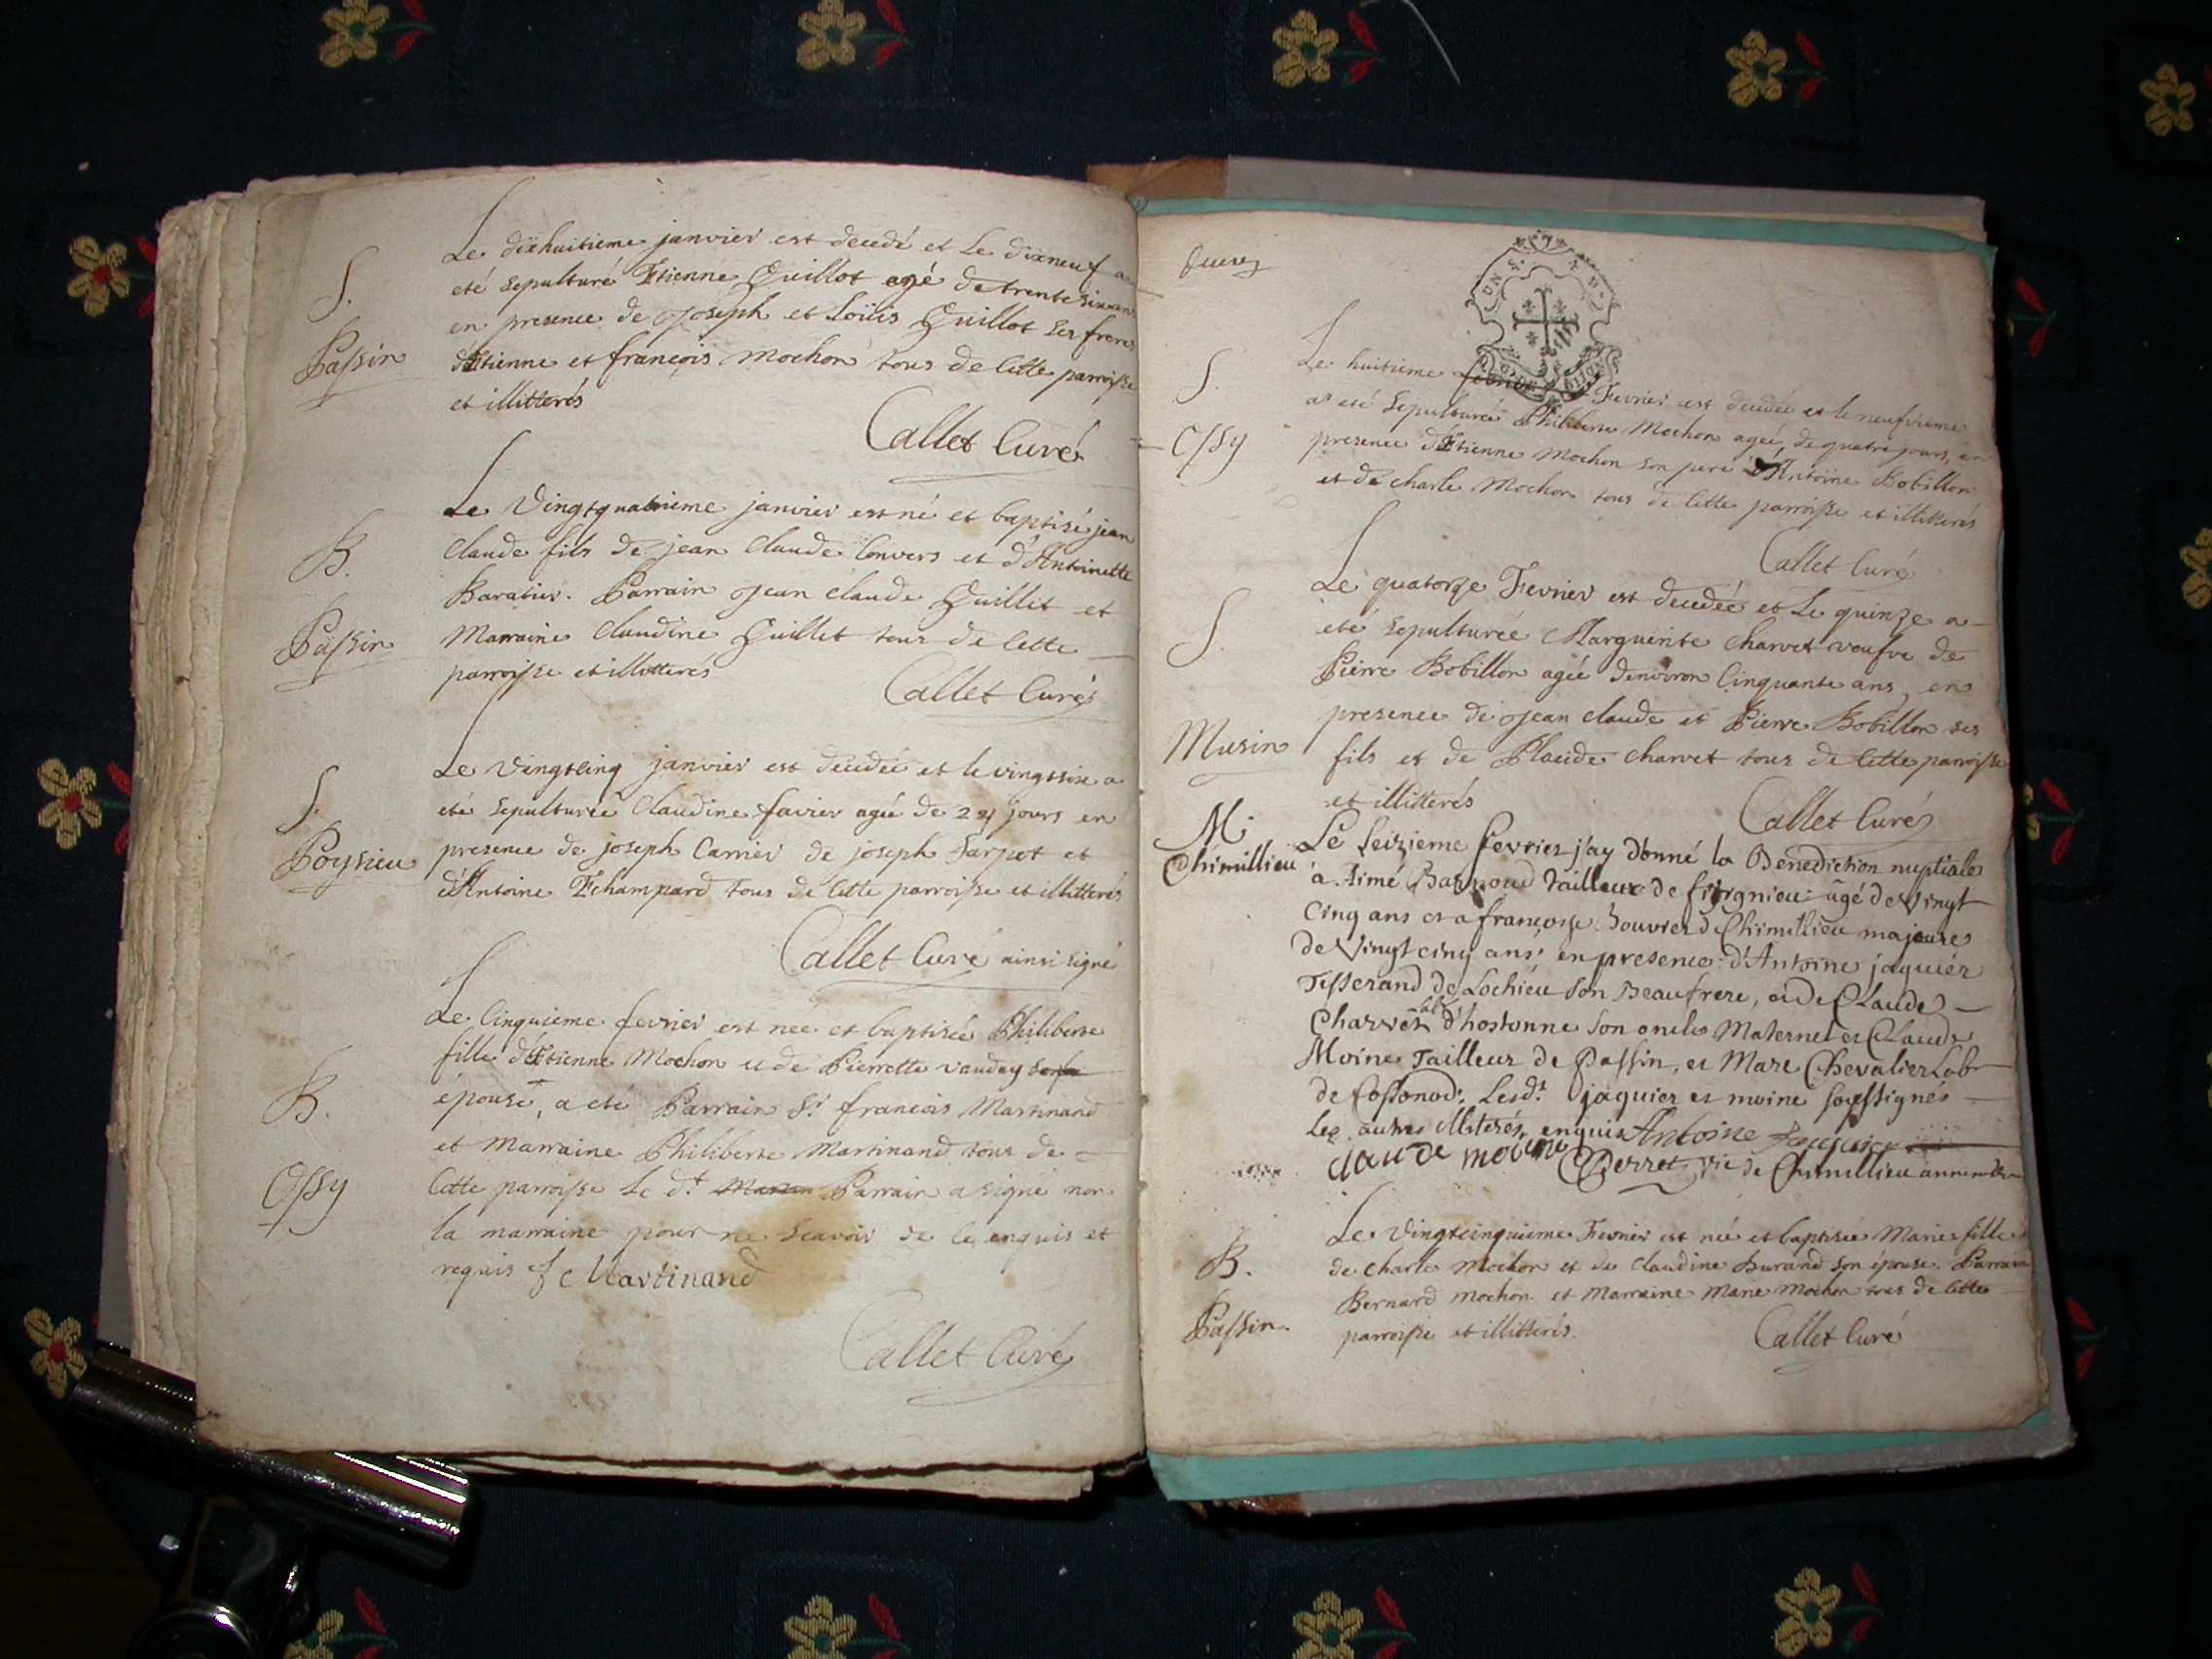 S.
Passin
Le dixhuitieme janvier est decedé et Le dixneuf a
eté sepulturé Etienne Guillot agé de trente six ans
en presence de Joseph et Loüis Guillot ses freres
d'Etienne et françois Mochon tous de cette parroisse
et illitterés
Callet Curé
B.
Passin
Le Vingtquatrieme janvier est né et baptisé jean
Claude fils de jean Claude Convers et d'Antoinette
Baratier. Parrain Jean Claude Guillet et
Marraine Claudine Guillet tous de cette
parroisse et illitterés
Callet Curé
S.
Poysieu
Le Vingtcinq janvier est decedée et le vingtsix a
eté sepulturée Claudine favier agée de 24 jours en
presence de joseph Carrier de joseph Sarpot et
d'Antoine Echampard tous de cette parroisse et illitterés
Callet Curé ainsi signé
B.
Ossy
Le Cinquieme fevrier est née et baptisée Philiberte
fille d'Etienne Mochon et de Pierrette vauday
épouse, a eté Parrain Sr. francois Martinand
et Marraine Philiberte Martinand tous de
Cette parroisse Le dt. Parrain a signé non
la marraine pour ne Scavoir de ce enquis et
requis f Martinand
Callet Curé
S.
Ossy
Le huitieme Fevrier est decedée et le neufvieme
a eté Sepulturée Philiberte Mochon agée, de quatre jours, en
presence d'Etienne Mochon son pere d'Antoine Bobillon
et de charle Mochon tous de Cette parroisse et illitterés
Callet Curé
S.
Musin
Le quatorze Fevrier est decedée et Le quinze a
eté sepulturée Marguerite Charvet veufve de
Pierre Bobillon agée denviron Cinquante ans, en
presence de Jean claude et Pierre Bobillon ses
fils et de Placide charvet tous de Cette parroisse
et illitterés
Callet Curé
M.
Chimillieu
Le Seizieme fevrier j'ay donné la Benediction nuptiale
à Aimé tailleur de agé de Vingt
Cinq ans et a françoise Bouvier de Chimillieu majeure
de Vingt cinq ans en presence d'Antoine jaquier
Tisserand de Lochieu Son Beaufrere, et de Claude
Charvet d'hostonne Son oncle Maternel et Claude
Moine Tailleur de Passin, et Marc Chevalier Lab
de Cossonod. Lesdt. jaquier et moine soussignés
Les autres illiterés enquis Antoine Jaquier
claude moine Derret vic de Chimillieu
B.
Passin.
Le Vingtcinquieme Fevrier est née et baptisée Marie fille
de Charle Mochon et de Claudine Durand son épouse. Parrain
Bernard Mochon et Marraine Marie Mochon tous de cette
parroisse et illitterés.
Callet Curé